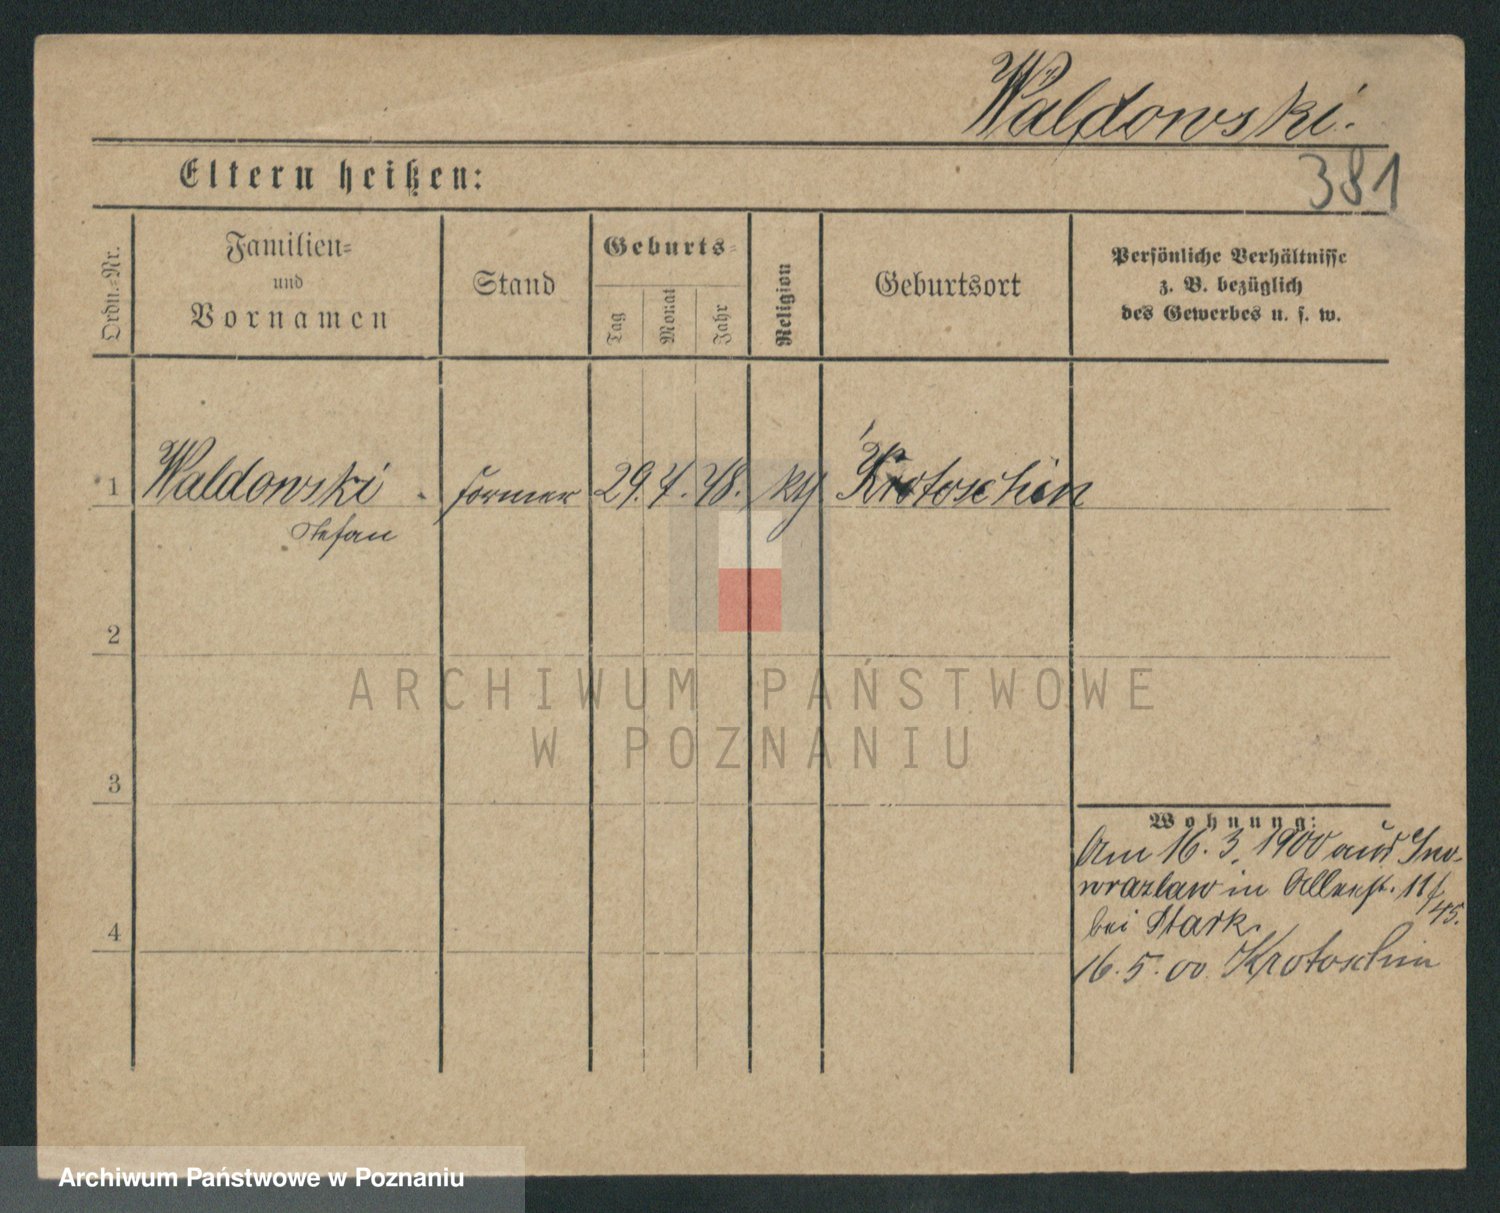 Waldowski.
381
Eltern heißen:
Ordn.=Nr.
Familien=
und
Vornamen
Stand
Geburts=
Tag
Monat
Jahr
Religion
Geburtsort
Persönliche Verhältnisse
z. B. bezüglich
des Gewerbes u. s. w.
1 Waldowski Former 29. 7. 78. Krotoschin
Stefan
2
3
4
Wohnung:
Am 16. 3. 1900 aus Ino-
wrazlaw in Allerhst. 11/45.
bei Stark.
16. 5. 00 Krotoschin
ARCHIWUM PAŃSTWOWE
W POZNANIU
Archiwum Państwowe w Poznaniu